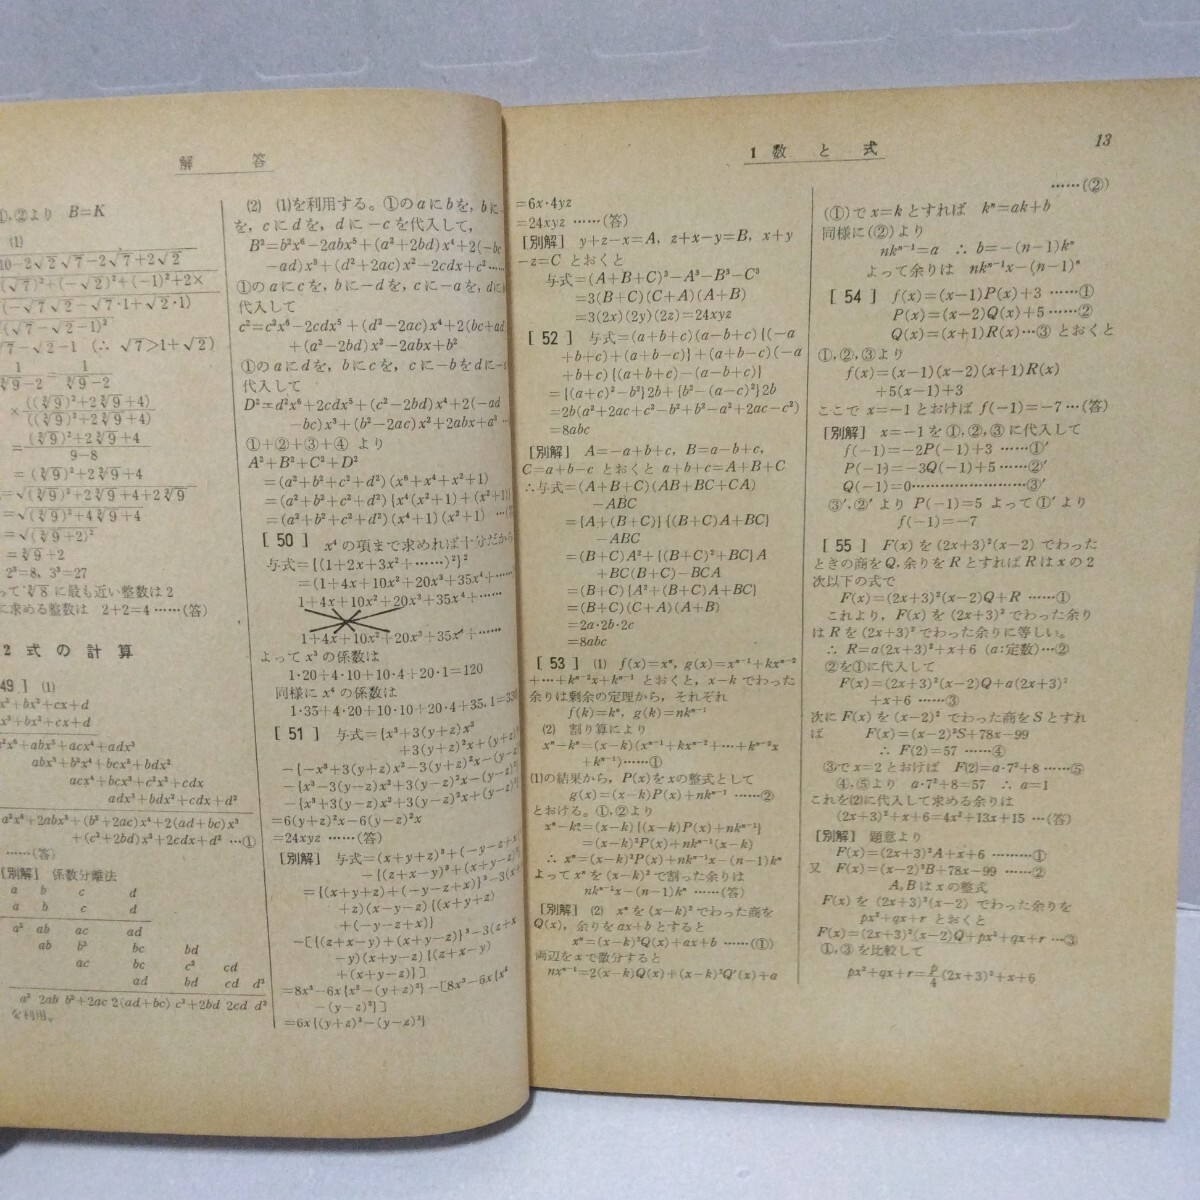 解 答
①,②より B=K
(1)
10-2√2√7-2√7+2√2
(√7)²+(-√2)²+(-1)²+2×
(-√7√2-√7·1+√2·1)
(√7-√2-1)²
√7-√2-1 (∴ √7>1+√2)
(∛9)²+2∛9+4
9-8
= (∛9)²+2∛9+4
=√(∛9)²+2∛9+4+2∛9
=√(∛9)²+4∛9+4
=√(∛9+2)²
= ∛9+2
2³=8, 3³=27
に最も近い整数は2
に求める整数は 2+2=4……(答)
2 式の計算
49] (1)
x³+bx²+cx+d
x³+bx²+cx+d
a²x⁶+abx⁵+acx⁴+adx³
abx⁵+b²x⁴+bcx³+bdx²
acx⁴+bcx³+c²x²+cdx
adx³+bdx²+cdx+d²
a²x⁶+2abx⁵+(b²+2ac)x⁴+2(ad+bc)x³
+(c²+2bd)x²+2cdx+d² …①
……(答)
[別解] 係数分離法
a b c d
a b c d
a² ab ac ad
ab b² bc bd
ac bc c² cd
ad bd cd d²
a² 2ab b²+2ac 2(ad+bc) c²+2bd 2cd d²
を利用。
(2) (1)を利用する。①のaにbを, bに-
を, cにdを, dに-cを代入して,
B²=b²x⁶-2abx⁵+(a²+2bd)x⁴+2(-bc
-ad)x³+(d²+2ac)x²-2cdx+c²……
①のaにcを, bに-dを, cに-aを, dに
代入して
c²=c²x⁶-2cdx⁵+(d²-2ac)x⁴+2(bc+ad
+(a²-2bd)x²-2abx+b²
①のaにdを, bにcを, cに-bをdに-
代入して
D²=d²x⁶+2cdx⁵+(c²-2bd)x⁴+2(-ad
-bc)x³+(b²-2ac)x²+2abx+a²…
①+②+③+④ より
A²+B²+C²+D²
=(a²+b²+c²+d²)(x⁶+x⁴+x²+1)
=(a²+b²+c²+d²){x⁴(x²+1)+(x²+1)
=(a²+b²+c²+d²)(x⁴+1)(x²+1) …(答
[50] x⁴の項まで求めれば十分だから
与式={(1+2x+3x²+……)²}²
=(1+4x+10x²+20x³+35x⁴+……
1+4x+10x²+20x³+35x⁴+……
1+4x+10x²+20x³+35x⁴+……
よってx³の係数は
1·20+4·10+10·4+20·1=120
同様にx⁴の係数は
1·35+4·20+10·10+20·4+35.1=330
[51] 与式={x³+3(y+z)x²
+3(y+z)²x+(y+z)³
-{-x³+3(y+z)x²-3(y+z)²x-(y
-{x³-3(y-z)x²+3(y-z)²x-(y-z)
-{x³+3(y-z)x²+3(y-z)²x+(y-z)
=6(y+z)²x-6(y-z)²x
=24xyz ……(答)
[別解] 与式=(x+y+z)³+(-y-z+x
-{(z+x-y)³+(x+y-
={(x+y+z)+(-y-z+x)}³-3(x+
+z)(x-y-z){(x+y+z)
+(-y-z+x)}
-[{(z+x-y)+(x+y-z)}³-3(z+x
-y)(x+y-z){(z+x-y)
+(x+y-z)}]
=8x³-6x{x²-(y+z)²}-[8x³-6x{x²
-(y-z)²}]
=6x{(y+z)²-(y-z)²}
1 数 と 式
13
=6x·4yz
=24xyz ……(答)
[別解] y+z-x=A, z+x-y=B, x+y
-z=C とおくと
与式=(A+B+C)³-A³-B³-C³
=3(B+C)(C+A)(A+B)
=3(2x)(2y)(2z)=24xyz
[52] 与式=(a+b+c)(a-b+c){(-a
+b+c)+(a+b-c)}+(a+b-c)(-a
+b+c){(a+b+c)-(a-b+c)}
={(a+c)²-b²}2b+{b²-(a-c)²}2b
=2b(a²+2ac+c²-b²+b²-a²+2ac-c²)
=8abc
[別解] A=-a+b+c, B=a-b+c,
C=a+b-c とおくと a+b+c=A+B+C
∴与式=(A+B+C)(AB+BC+CA)
-ABC
={A+(B+C)}{(B+C)A+BC}
-ABC
=(B+C)A²+{(B+C)²+BC}A
+BC(B+C)-BCA
=(B+C){A²+(B+C)A+BC}
=(B+C)(C+A)(A+B)
=2a·2b·2c
=8abc
[53] (1) f(x)=xⁿ, g(x)=xⁿ⁻¹+kxⁿ⁻²
+…+kⁿ⁻²x+kⁿ⁻¹ とおくと, x-kでわった
余りは剰余の定理から, それぞれ
f(k)=kⁿ, g(k)=nkⁿ⁻¹
(2) 割り算により
xⁿ-kⁿ=(x-k)(xⁿ⁻¹+kxⁿ⁻²+…+kⁿ⁻²x
+kⁿ⁻¹)……①
(1)の結果から, P(x)をxの整式として
g(x)=(x-k)P(x)+nkⁿ⁻¹ ……②
とおける。①,②より
xⁿ-kⁿ=(x-k){(x-k)P(x)+nkⁿ⁻¹}
=(x-k)²P(x)+nkⁿ⁻¹(x-k)
∴ xⁿ=(x-k)²P(x)+nkⁿ⁻¹x-(n-1)kⁿ
よってxⁿを(x-k)²で割った余りは
nkⁿ⁻¹x-(n-1)kⁿ ……(答)
[別解] (2) xⁿを(x-k)²でわった商を
Q(x), 余りをax+bとすると
xⁿ=(x-k)²Q(x)+ax+b ……(①)
両辺をxで微分すると
nxⁿ⁻¹=2(x-k)Q(x)+(x-k)²Q'(x)+a
……(②)
(①)でx=kとすれば kⁿ=ak+b
同様に(②)より
nkⁿ⁻¹=a ∴ b=-(n-1)kⁿ
よって余りは nkⁿ⁻¹x-(n-1)ⁿ
[54] f(x)=(x-1)P(x)+3 ……①
P(x)=(x-2)Q(x)+5 ……②
Q(x)=(x+1)R(x)…③ とおくと
①,②,③より
f(x)=(x-1)(x-2)(x+1)R(x)
+5(x-1)+3
ここで x=-1とおけば f(-1)=-7…(答)
[別解] x=-1を①,②,③に代入して
f(-1)=-2P(-1)+3 ……①′
P(-1)=-3Q(-1)+5 ……②′
Q(-1)=0……………………③′
③′,②′より P(-1)=5 よって①′より
f(-1)=-7
[55] F(x)を(2x+3)²(x-2)でわった
ときの商をQ, 余りをRとすればRはxの2
次以下の式で
F(x)=(2x+3)²(x-2)Q+R ……①
これより, F(x)を(2x+3)²でわった余り
はRを(2x+3)²でわった余りに等しい。
∴ R=a(2x+3)²+x+6 (a:定数)…②
②を①に代入して
F(x)=(2x+3)²(x-2)Q+a(2x+3)²
+x+6 ……③
次にF(x)を(x-2)²でわった商をSとすれ
ば F(x)=(x-2)²S+78x-99
∴ F(2)=57 ……④
③でx=2とおけば F(2)=a·7²+8 ……⑤
④,⑤より a·7²+8=57 ∴ a=1
これを②に代入して求める余りは
(2x+3)²+x+6=4x²+13x+15 …(答)
[別解] 題意より
F(x)=(2x+3)²A+x+6 ………①
又 F(x)=(x-2)²B+78x-99 ……②
A,Bはxの整式
F(x)を(2x+3)²(x-2)でわった余りを
px²+qx+rとおくと
F(x)=(2x+3)²(x-2)Q+px²+qx+r …③
①,③を比較して
px²+qx+r=p/4(2x+3)²+x+6